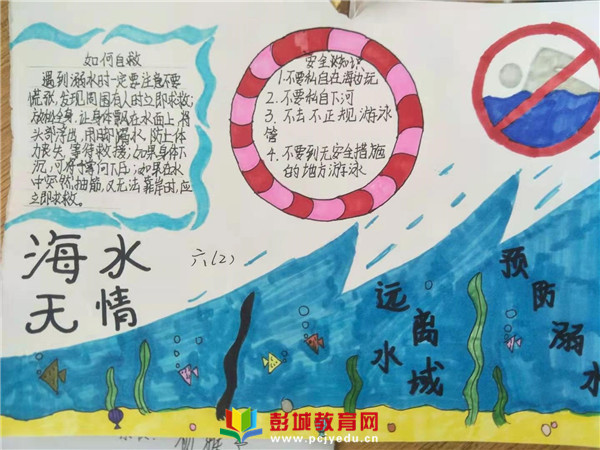 如何自救
遇到溺水时一定要注意不要
慌张,发现周围有人时立即求救;
放松全身,让身体飘在水面上,将
头部浮出,用脚踢水,防止体
力丧失,等待救援;如果身体下
沉,可将手掌向下压;如果在水
中突然抽筋,又无法靠岸时,应
立即求救。
安全知识
1.不要私自在海边玩
2.不要私自下河
3.不去不正规游泳
管
4.不要到无安全措施
的地方游泳
海水
无情
六(2)
远离
水域
预防溺水
彭城教育网
www.pcjyedu.cn